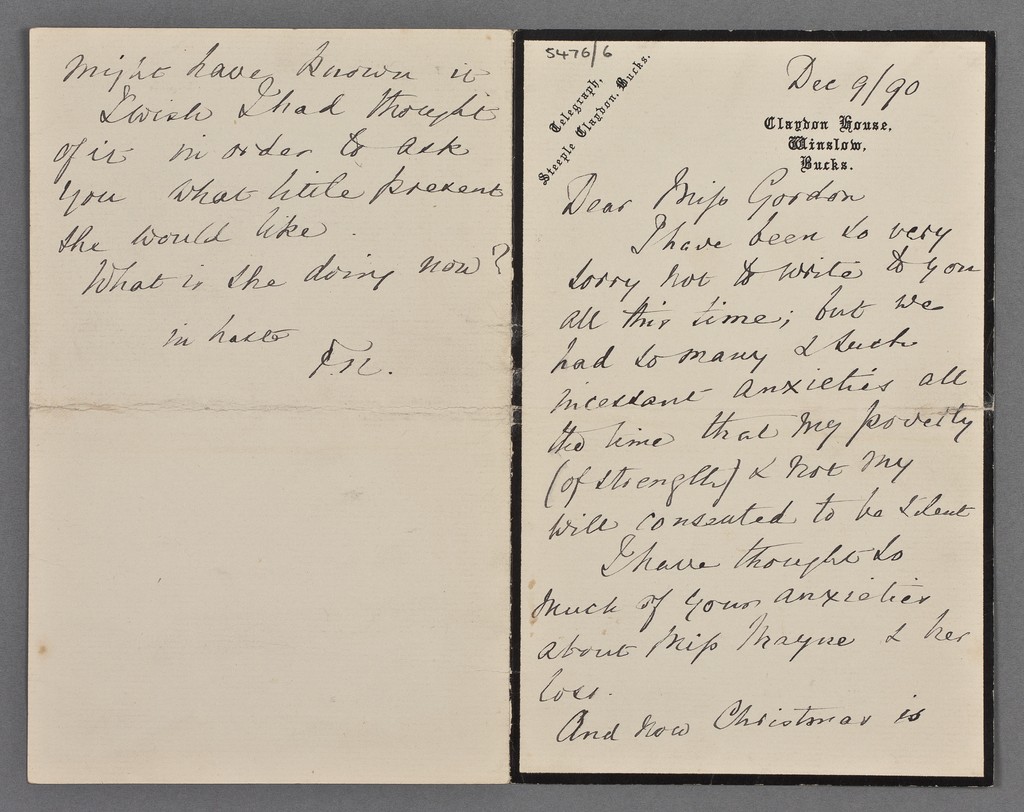 5476/6
Telegraph,
Steeple Claydon. Bucks.
Dec 9/90
Claydon House,
Winslow,
Bucks.
Dear Miss Gordon
I have been so very
sorry not to write to you
all this time; but we
had so many & such
incessant anxieties all
the time that my poverty
(of strength) & not my
will consented to be silent
I have thought so
much of your anxieties
about Miss Mayne & her
loss.
And now Christmas is
might have known it
I wish I had thought
of it in order to ask
you what little present
she would like.
What is she doing now?
in haste
F.N.